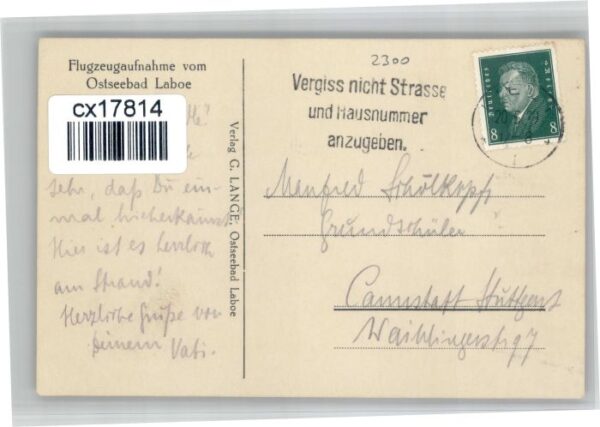 Flugzeugaufnahme vom
Ostseebad Laboe
cx17814
sehr, daß Du ein-
mal hierherkannst.
Hier ist es herrlich
am Strand!
Herzliche Grüße von
Deinem Vati.
Verlag C. LANGE, Ostseebad Laboe
2300
Vergiss nicht Strasse
und Hausnummer
anzugeben.
8 8
Manfred Schölkopf
Grundschüler
Cannstatt Stuttgart
Waiblingerstr 97